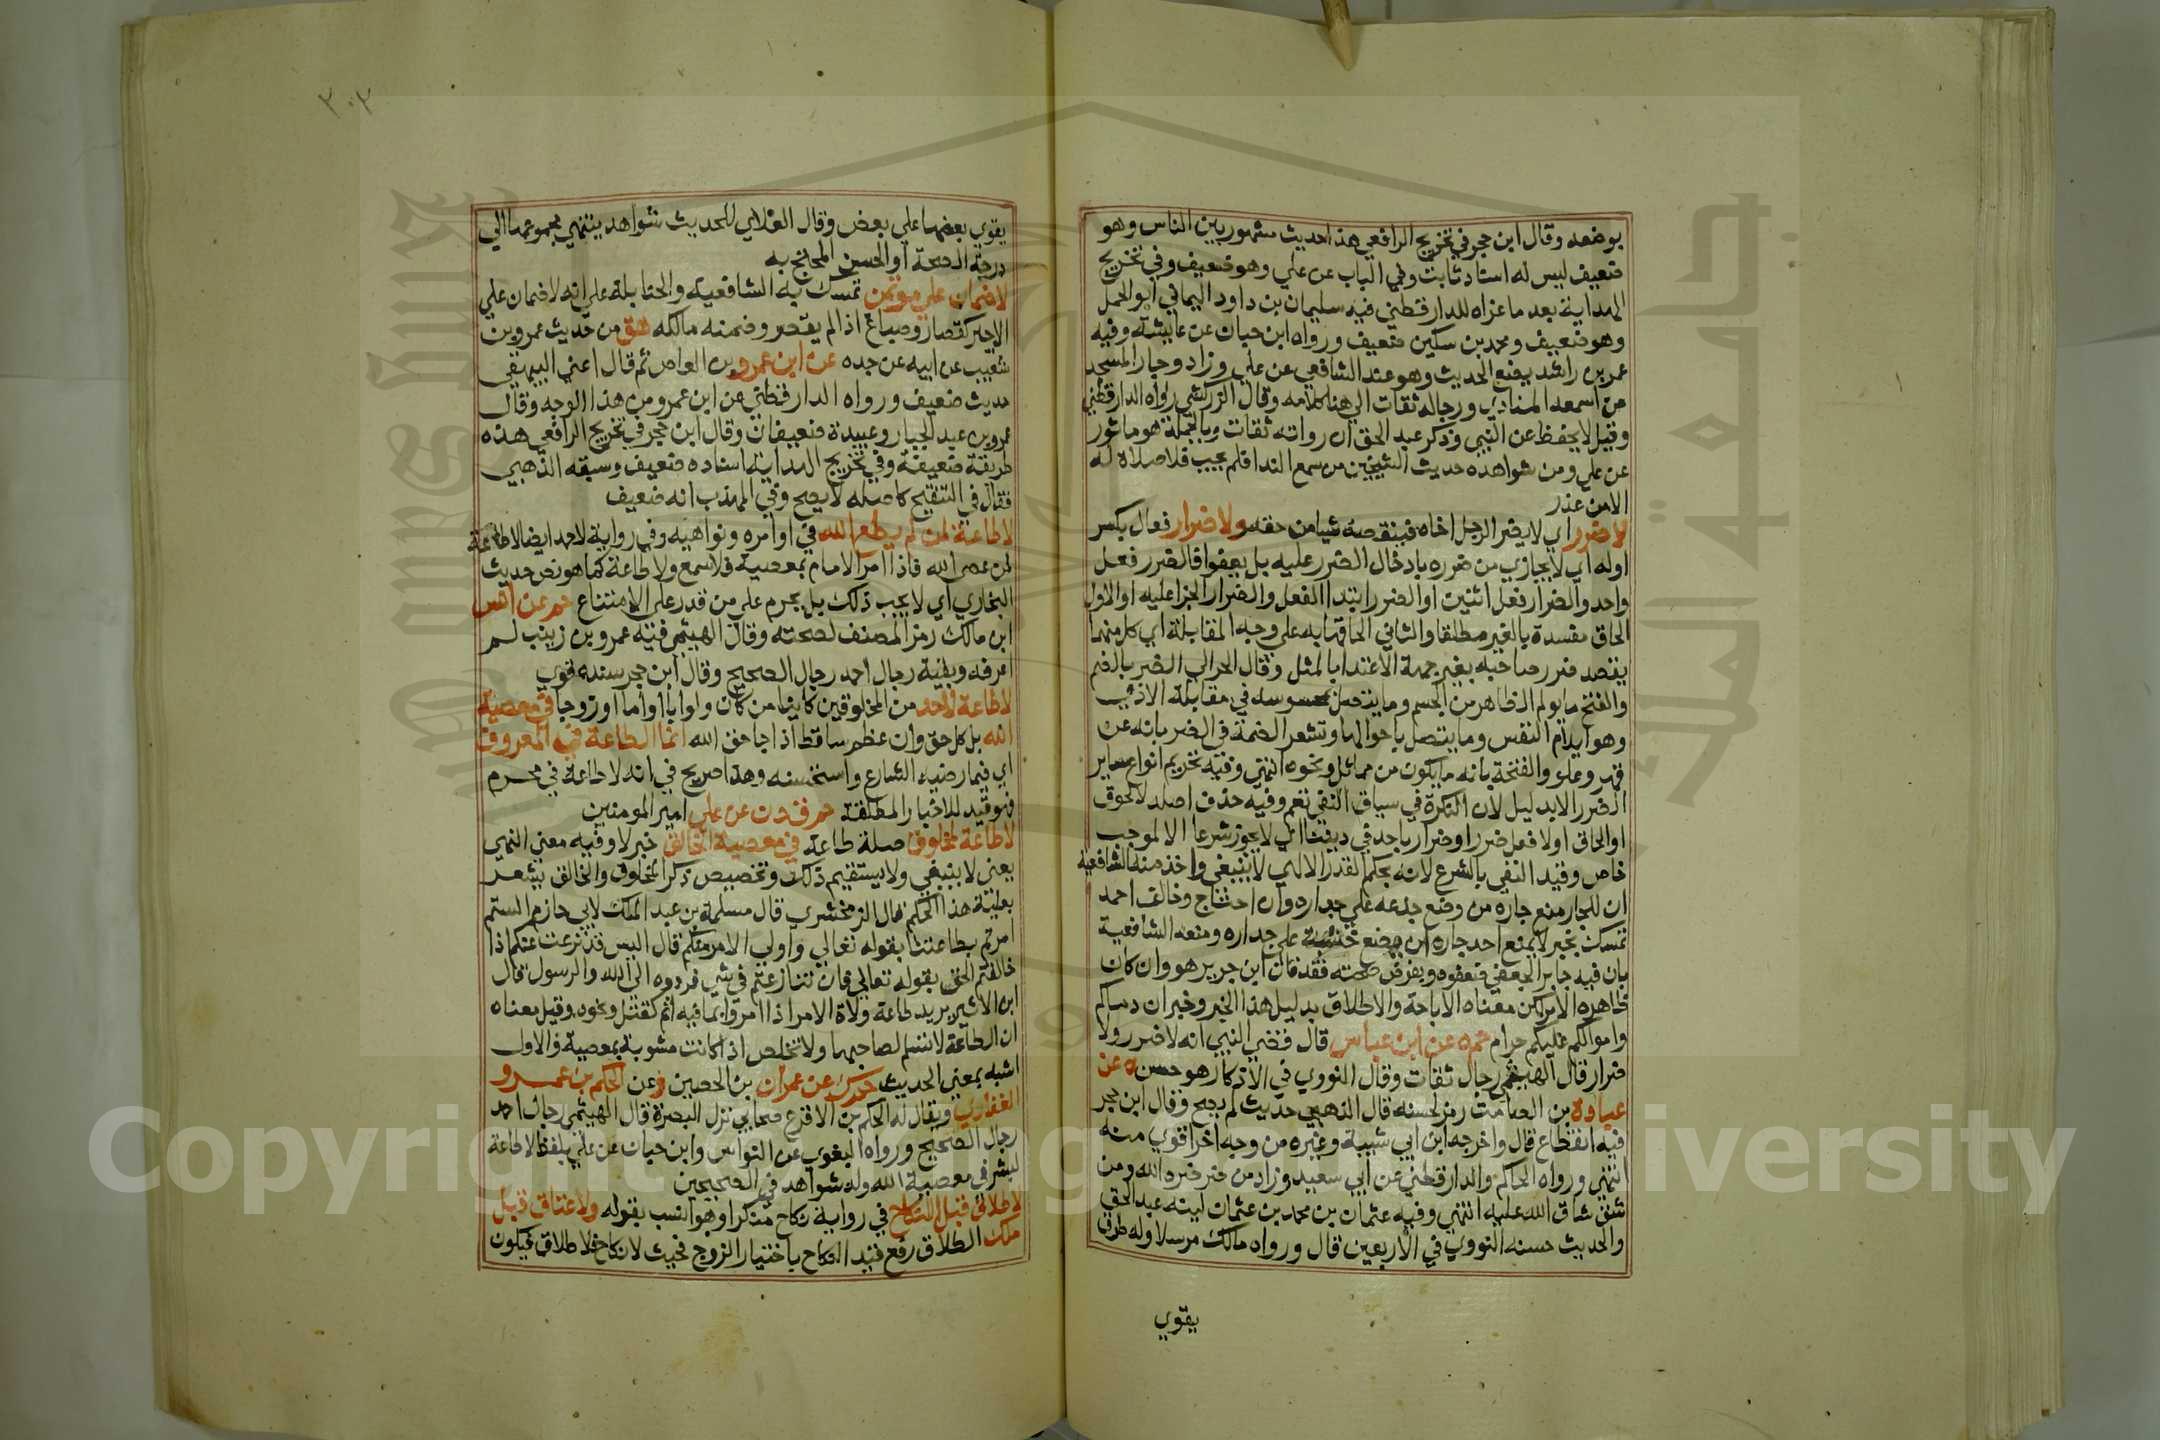 بوضعه وقال ابن حجر في تخريج الرافعي هذا حديث مشهور بين الناس وهو
ضعيف ليس له اسناد ثابت وفي الباب عن علي وهو ضعيف وفي تخريج
الهداية بعد ما عزاه للدارقطني فيه سليمان بن داود اليماني ابو الجمل
وهو ضعيف ومحمد بن سكين ضعيف ورواه ابن حبان عن عايشة وفيه
عمر بن راشد يضع الحديث وهو عند الشافعي عن علي وزاد وجار المسجد
من اسمعه المنادي ورجاله ثقات الي هنا كلامه وقال الزركشي رواه الدارقطني
وقيل لا يحفظ عن النبي وذكر عبد الحق ان رواته ثقات وبالجملة هو ماثور
عن علي ومن شواهده حديث الشيخين من سمع الندا فلم يجب فلا صلاة له
الا من عذر
لا ضرر اي لا يضر الرجل اخاه فينقصه شيا من حقه ولا ضرار فعال بكسر
اوله اي لا يجازي من ضره بادخال الضرر عليه بل يعفو فالضرر فعل
واحد والضرار فعل اثنين او الضرر ابتدا الفعل والضرار الجزا عليه او الاول
الحاق مفسدة بالغير مطلقا والثاني الحاقها به علي وجه المقابلة اي كل منهما
يقصد ضرر صاحبه بغير جهة الاعتدا بالمثل وقال الحرالي الضر بالضم
والفتح ما يولم الظاهر من الجسم وما يتصل بمحسوسه في مقابلة الاذي
وهو ايلام النفس وما يتصل باحوالها وتشعر الضمة في الضر بانه عن
قهر وعلو والفتحة بانه ما يكون من مماثل ونحوه انتهي وفيه تحريم انواع ساير
الضرر الا بدليل لان النكرة في سياق النفي تعم وفيه حذف اصله لا لحوق
او الحاق اولا فعل ضرر او ضرار باحد في ديننا اي لا يجوز شرعا الا لموجب
خاص وقيد النفي بالشرع لانه بحكم القدر الالهي لا ينبغي واخذ منه الشافعية
ان للجار منع جاره من وضع جذعه علي جداره وان احتاج وخالف احمد
تمسك بخبر لا يمنع احد جاره ان يضع خشبه علي جداره ومنعه الشافعية
بان فيه جابر الجعفي ضعفوه وبفرض صحته فقد قال ابن جرير هو وان كان
ظاهره الامر لكن معناه الاباحة والاطلاق بدليل هذا الخبر وخبر ان دماكم
واموالكم عليكم حرام حم ه عن ابن عباس قال قضي النبي انه لا ضرر ولا
ضرار قال الهيثمي رجال ثقات وقال النووي في الاذكار هو حسن ه عن
عبادة بن الصامت رمز لحسنه قال الذهبي حديث لم يصح وقال ابن حجر
فيه انقطاع قال واخرجه ابن ابي شيبة وغيره من وجه اخر اقوي منه
انتهي ورواه الحاكم والدارقطني عن ابي سعيد وزاد من ضر ضره الله ومن
شق شاق الله عليه انتهي وفيه عثمان بن محمد بن عثمان لينه عبد الحق
والحديث حسنه النووي في الاربعين قال ورواه مالك مرسلا وله طرق
يقوي
٣٠٣
يقوي بعضها علي بعض وقال العلاي للحديث شواهد ينتهي مجموعها الي
درجة الصحة او الحسن المحتج به
لا ضمان علي موتمن تمسك به الشافعية والحنابلة علي انه لا ضمان علي
الاجير كقصار وصباغ اذا لم يقصر وضمنه مالكه هق من حديث عمرو بن
شعيب عن ابيه عن جده عن ابن عمرو بن العاص ثم قال اعني البيهقي
حديث ضعيف ورواه الدارقطني عن ابن عمرو من هذا الوجه وقال
عمرو بن عبد الجبار وعبيدة ضعيفان وقال ابن حجر في تخريج الرافعي هذه
طريقة ضعيفة وفي تخريج الهداية اسناده ضعيف وسبقه الذهبي
فقال في التنقيح كاصله لا يصح وفي المهذب انه ضعيف
لا طاعة لمن لم يطع الله في اوامره ونواهيه وفي رواية لاحمد ايضا لا طاعة
لمن عصي الله فاذا امر الامام بمعصية فلا سمع ولا طاعة كما هو نص حديث
البخاري اي لا يجب ذلك بل يحرم علي من قدر علي الامتناع حم عن انس
ابن مالك رمز المصنف لصحته وقال الهيثمي فيه عمرو بن زينب لم
اعرفه وبقية رجال احمد رجال الصحيح وقال ابن حجر سنده قوي
لا طاعة لاحد من المخلوقين كاينا من كان ولو ابا او اما او زوجا في معصية
الله بل كل حق وان عظم ساقط اذا جا حق الله انما الطاعة في المعروف
اي فيما رضيه الشارع واستحسنه وهذا صريح في انه لا طاعة في محرم
فهو قيد للاخبار المطلقة حم ق د ن عن علي امير المومنين
لا طاعة لمخلوق صلة طاعة في معصية الخالق خبر لا وفيه معني النهي
يعني لا ينبغي ولا يستقيم ذلك وتخصيص ذكر المخلوق والخالق يشعر
بعلية هذا الحكم قال الزمخشري قال مسلمة بن عبد الملك لابي حازم الستم
امرتم بطاعتنا بقوله تعالي واولي الامر منكم قال اليس قد نزعت عنكم اذا
خالفتم الحق بقوله تعالي فان تنازعتم في شي فردوه الي الله والرسول قال
ابن الاثير يريد طاعة ولاة الامر اذا امروا بما فيه اثم كقتل ونحوه وقيل معناه
ان الطاعة لا تسلم لصاحبها ولا تخلص اذا كانت مشوبة بمعصية والاول
اشبه بمعني الحديث حم ك عن عمران بن الحصين وعن الحكم بن عمرو
الغفاري ويقال له الحكم بن الاقرع صحابي نزل البصرة قال الهيثمي رجال احمد
رجال الصحيح ورواه البغوي عن النواس وابن حبان عن علي بلفظ لا طاعة
لبشر في معصية الله وله شواهد في الصحيحين
لا طلاق قبل النكاح في رواية نكاح منكرا وهو انسب بقوله ولا عتاق قبل
ملك الطلاق رفع قيد النكاح باختيار الزوج فحيث لا نكاح فلا طلاق فيكون
Copyright © King Saud University
جامعة الملك سعود